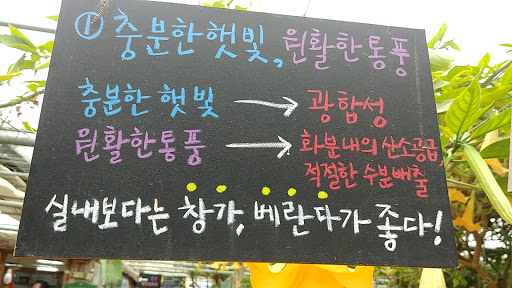 ① 충분한 햇빛, 원활한 통풍
충분한 햇빛 → 광합성
원활한 통풍 → 화분 내의 산소공급,
적절한 수분배출
실내보다는 창가, 베란다가 좋다!